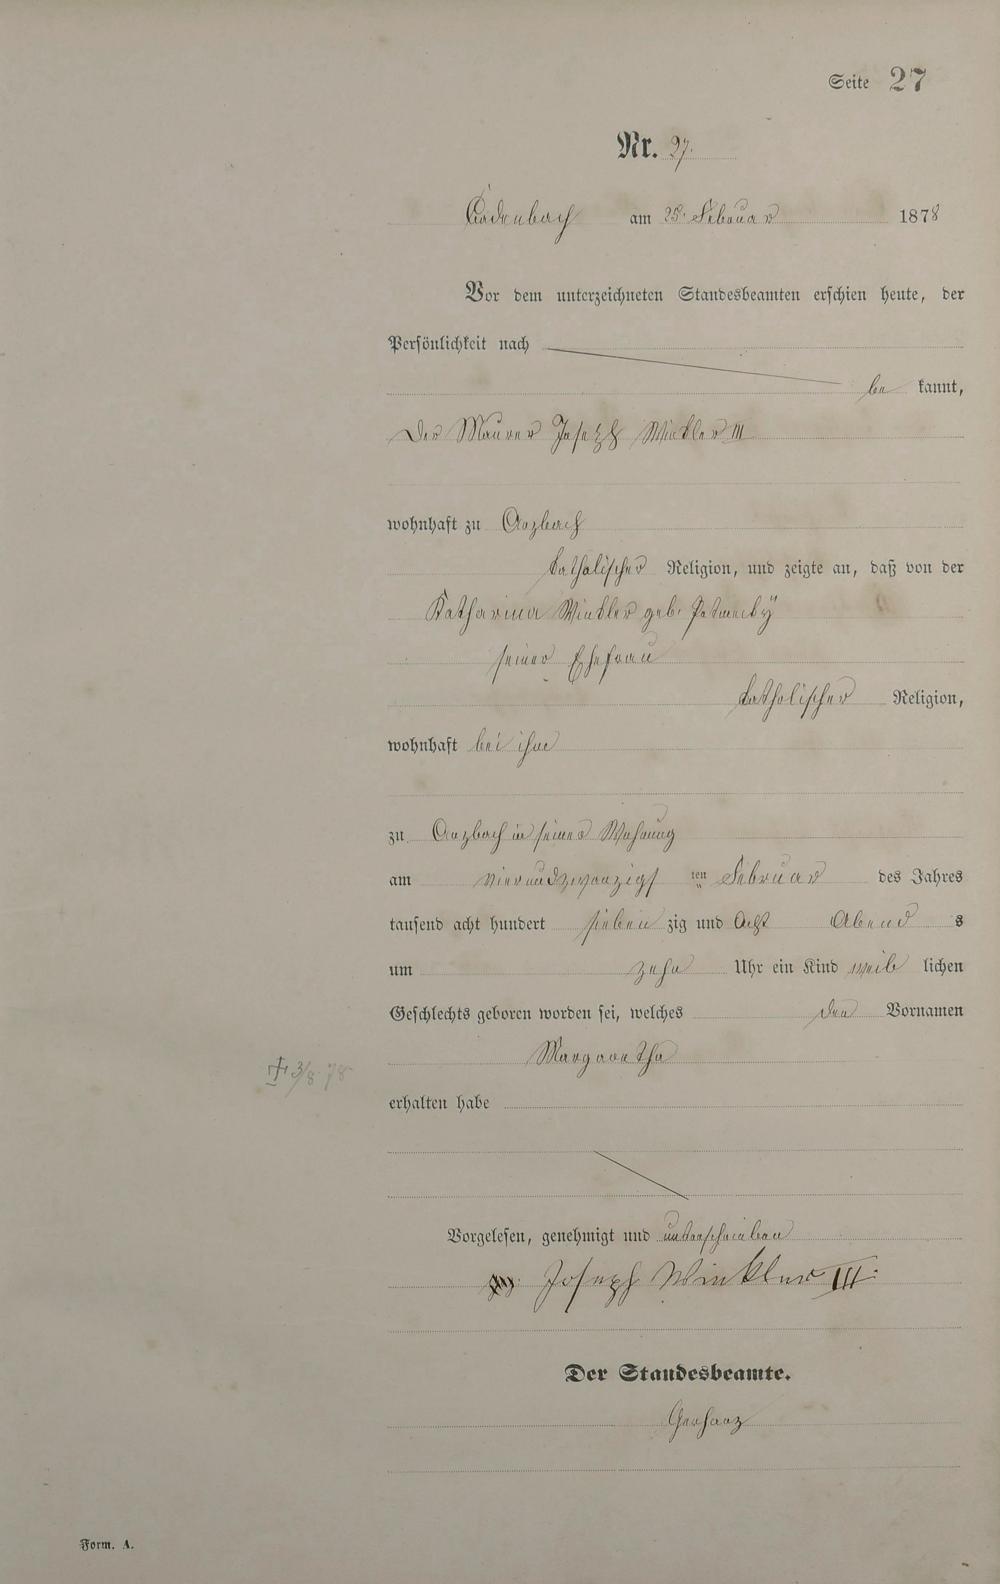 Seite 27
Nr. 27.
Cadenbach am 25. Februar 1878
Vor dem unterzeichneten Standesbeamten erschien heute, der
Persönlichkeit nach
be kannt,
Der Maurer Joseph Winkler III
wohnhaft zu Arzbach
katholischer Religion, und zeigte an, daß von der
Katharina Winkler geb.
seiner Ehefrau
katholischer Religion,
wohnhaft bei ihm
zu Arzbach in seiner Wohnung
am vierundzwanzigs ten Februar des Jahres
tausend acht hundert sieben zig und Acht Abend s
um zehn Uhr ein Kind weib lichen
Geschlechts geboren worden sei, welches den Vornamen
Margaretha
† 3/8 78
erhalten habe
Vorgelesen, genehmigt und unterschrieben
Joseph Winkler III.
Der Standesbeamte.
Gerharz
Form. A.